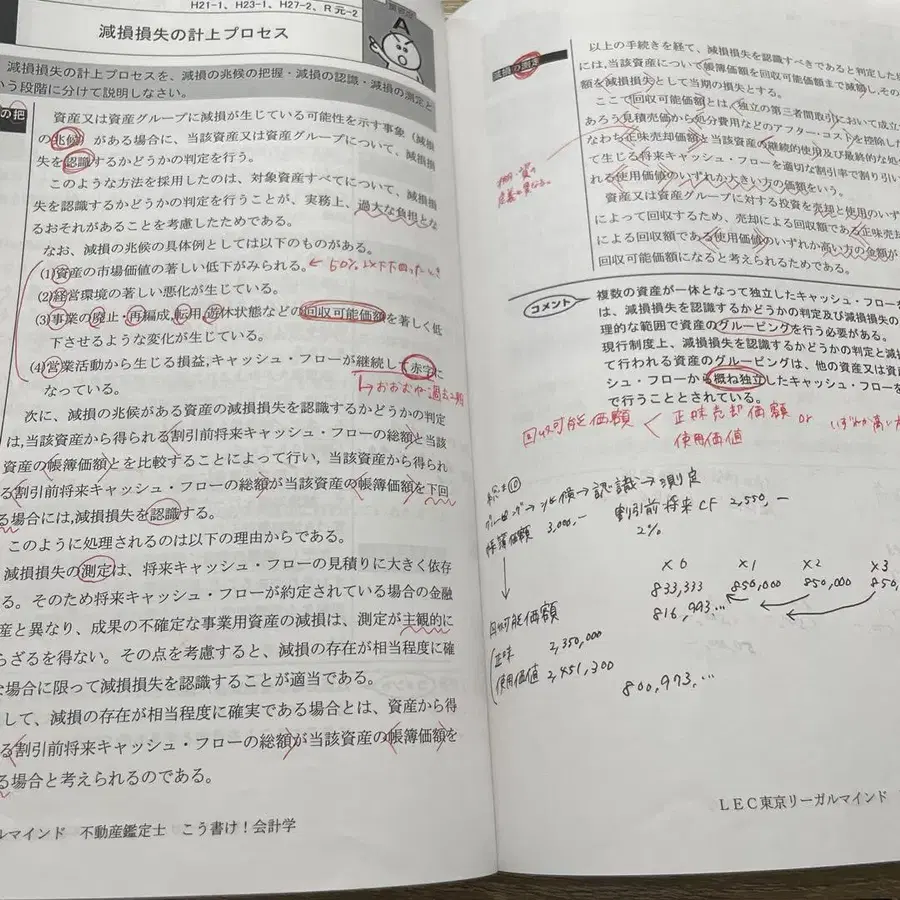 H21-1、H23-1、H27-2、R元-2
重要度
A
減損損失の計上プロセス
減損損失の計上プロセスを、減損の兆候の把握・減損の認識・減損の測定と
いう段階に分けて説明しなさい。
の把
資産又は資産グループに減損が生じている可能性を示す事象（減損
の兆候）がある場合に、当該資産又は資産グループについて、減損損
失を認識するかどうかの判定を行う。
このような方法を採用したのは、対象資産すべてについて、減損損
失を認識するかどうかの判定を行うことが、実務上、過大な負担とな
るおそれがあることを考慮したためである。
なお、減損の兆候の具体例としては以下のものがある。
(1)資産の市場価値の著しい低下がみられる。 ← 50%以上下回ったとき
(2)経営環境の著しい悪化が生じている。
(3)事業の廃止・再編成,転用,遊休状態などの回収可能価額を著しく低
下させるような変化が生じている。
(4)営業活動から生じる損益,キャッシュ・フローが継続して赤字に
なっている。
↳おおむね過去2期
次に、減損の兆候がある資産の減損損失を認識するかどうかの判定
は,当該資産から得られる割引前将来キャッシュ・フローの総額と当該
資産の帳簿価額とを比較することによって行い，当該資産から得られ
る割引前将来キャッシュ・フローの総額が当該資産の帳簿価額を下回
る場合には,減損損失を認識する。
このように処理されるのは以下の理由からである。
減損損失の測定は、将来キャッシュ・フローの見積りに大きく依存
る。そのため将来キャッシュ・フローが約定されている場合の金融
産と異なり、成果の不確定な事業用資産の減損は、測定が主観的に
らざるを得ない。その点を考慮すると、減損の存在が相当程度に確
な場合に限って減損損失を認識することが適当である。
して、減損の存在が相当程度に確実である場合とは、資産から得
る割引前将来キャッシュ・フローの総額が当該資産の帳簿価額を
る場合と考えられるのである。
ルマインド 不動産鑑定士 こう書け！会計学
減損の測定
以上の手続きを経て、減損損失を認識すべきであると判定した
には、当該資産について帳簿価額を回収可能価額まで減額し、その
額を減損損失として当期の損失とする。
ここで回収可能価額とは、独立の第三者間取引において成立
あろう見積売価から処分費用などのアフター・コストを控除した
なわち正味売却価額と当該資産の継続的使用及び最終的な処
て生じる将来キャッシュ・フローを適切な割引率で割り引い
れる使用価値のいずれか大きい方の価額をいう。
資産又は資産グループに対する投資を売却と使用のいず
によって回収するため、売却による回収額である正味売
による回収額である使用価値のいずれか高い方の金額が
回収可能価額になると考えられるためである。
コメント
複数の資産が一体となって独立したキャッシュ・フローを
は、減損損失を認識するかどうかの判定及び減損損失の
理的な範囲で資産のグルーピングを行う必要がある。
現行制度上、減損損失を認識するかどうかの判定と減
て行われる資産のグルーピングは、他の資産又は資産
シュ・フローから概ね独立したキャッシュ・フローを
で行うこととされている。
回収可能価額 < 正味売却価額 or いずれか高い方
使用価値
グルーピング→兆候→認識→測定
帳簿価額 3,000,-
割引前将来CF 2,550,-
2%
×0 ×1 ×2 ×3
833,333 850,000 850,000 850,
816,993…
回収可能価額
正味 2,350,000
使用価値 2,451,300
800,973…
LEC東京リーガルマインド